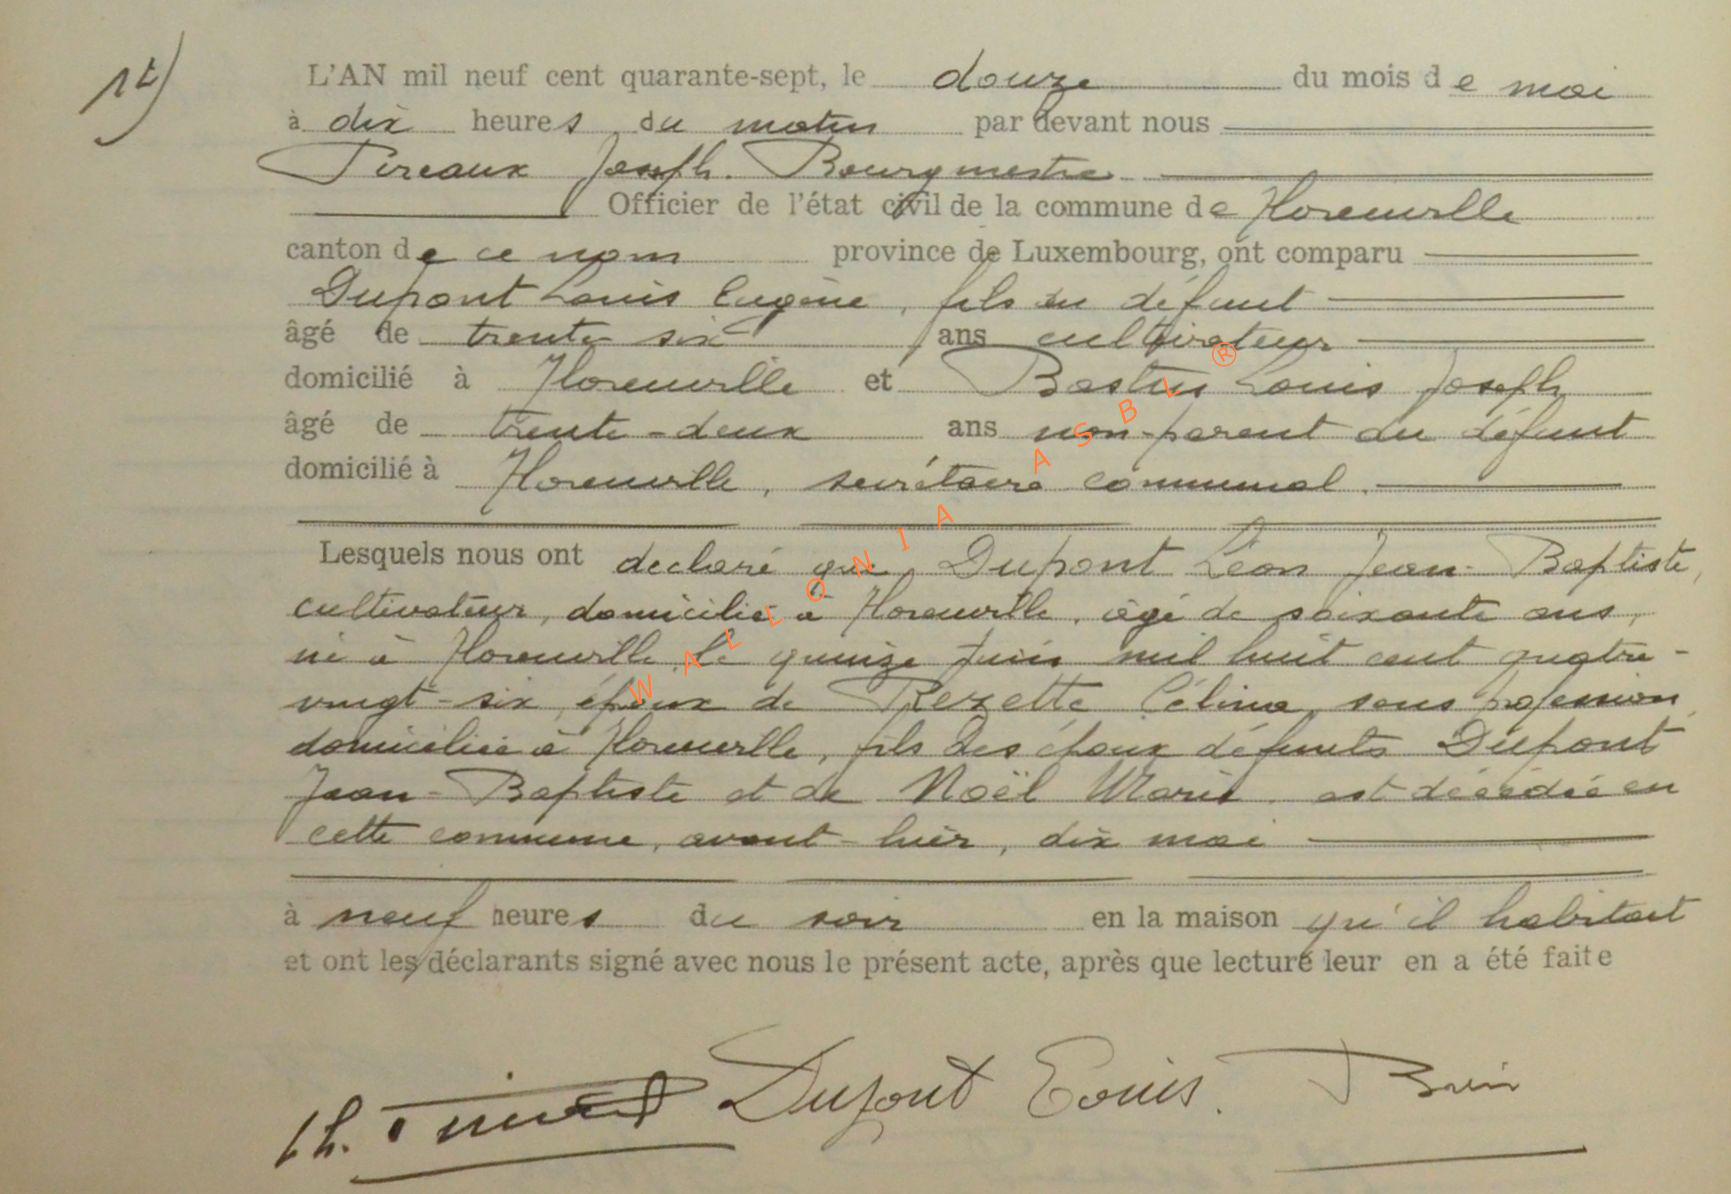 L'AN mil neuf cent quarante-sept, le douze du mois de mai
à dix heures du matin par devant nous
Pireaux Joseph. Bourgmestre
Officier de l'état civil de la commune de Florenville
canton de ce nom province de Luxembourg, ont comparu
Dupont Louis Eugène, fils du défunt
âgé de trente six ans cultivateur
domicilié à Florenville et Bastin Louis Joseph
âgé de trente-deux ans non-parent du défunt
domicilié à Florenville, secrétaire communal.
Lesquels nous ont déclaré que Dupont Léon Jean-Baptiste,
cultivateur, domicilié à Florenville, âgé de soixante ans,
né à Florenville le quinze juin mil huit cent quatre-
vingt-six, époux de Rezette Célina, sans profession,
domiciliée à Florenville, fils des époux défunts Dupont
Jean-Baptiste et de Noël Marie. est décédé en
cette commune, avant-hier, dix mai
à neuf heures du soir en la maison qu'il habitait
et ont les déclarants signé avec nous le présent acte, après que lecture leur en a été faite
Dupont Louis.
WALLONIA ASBL ®